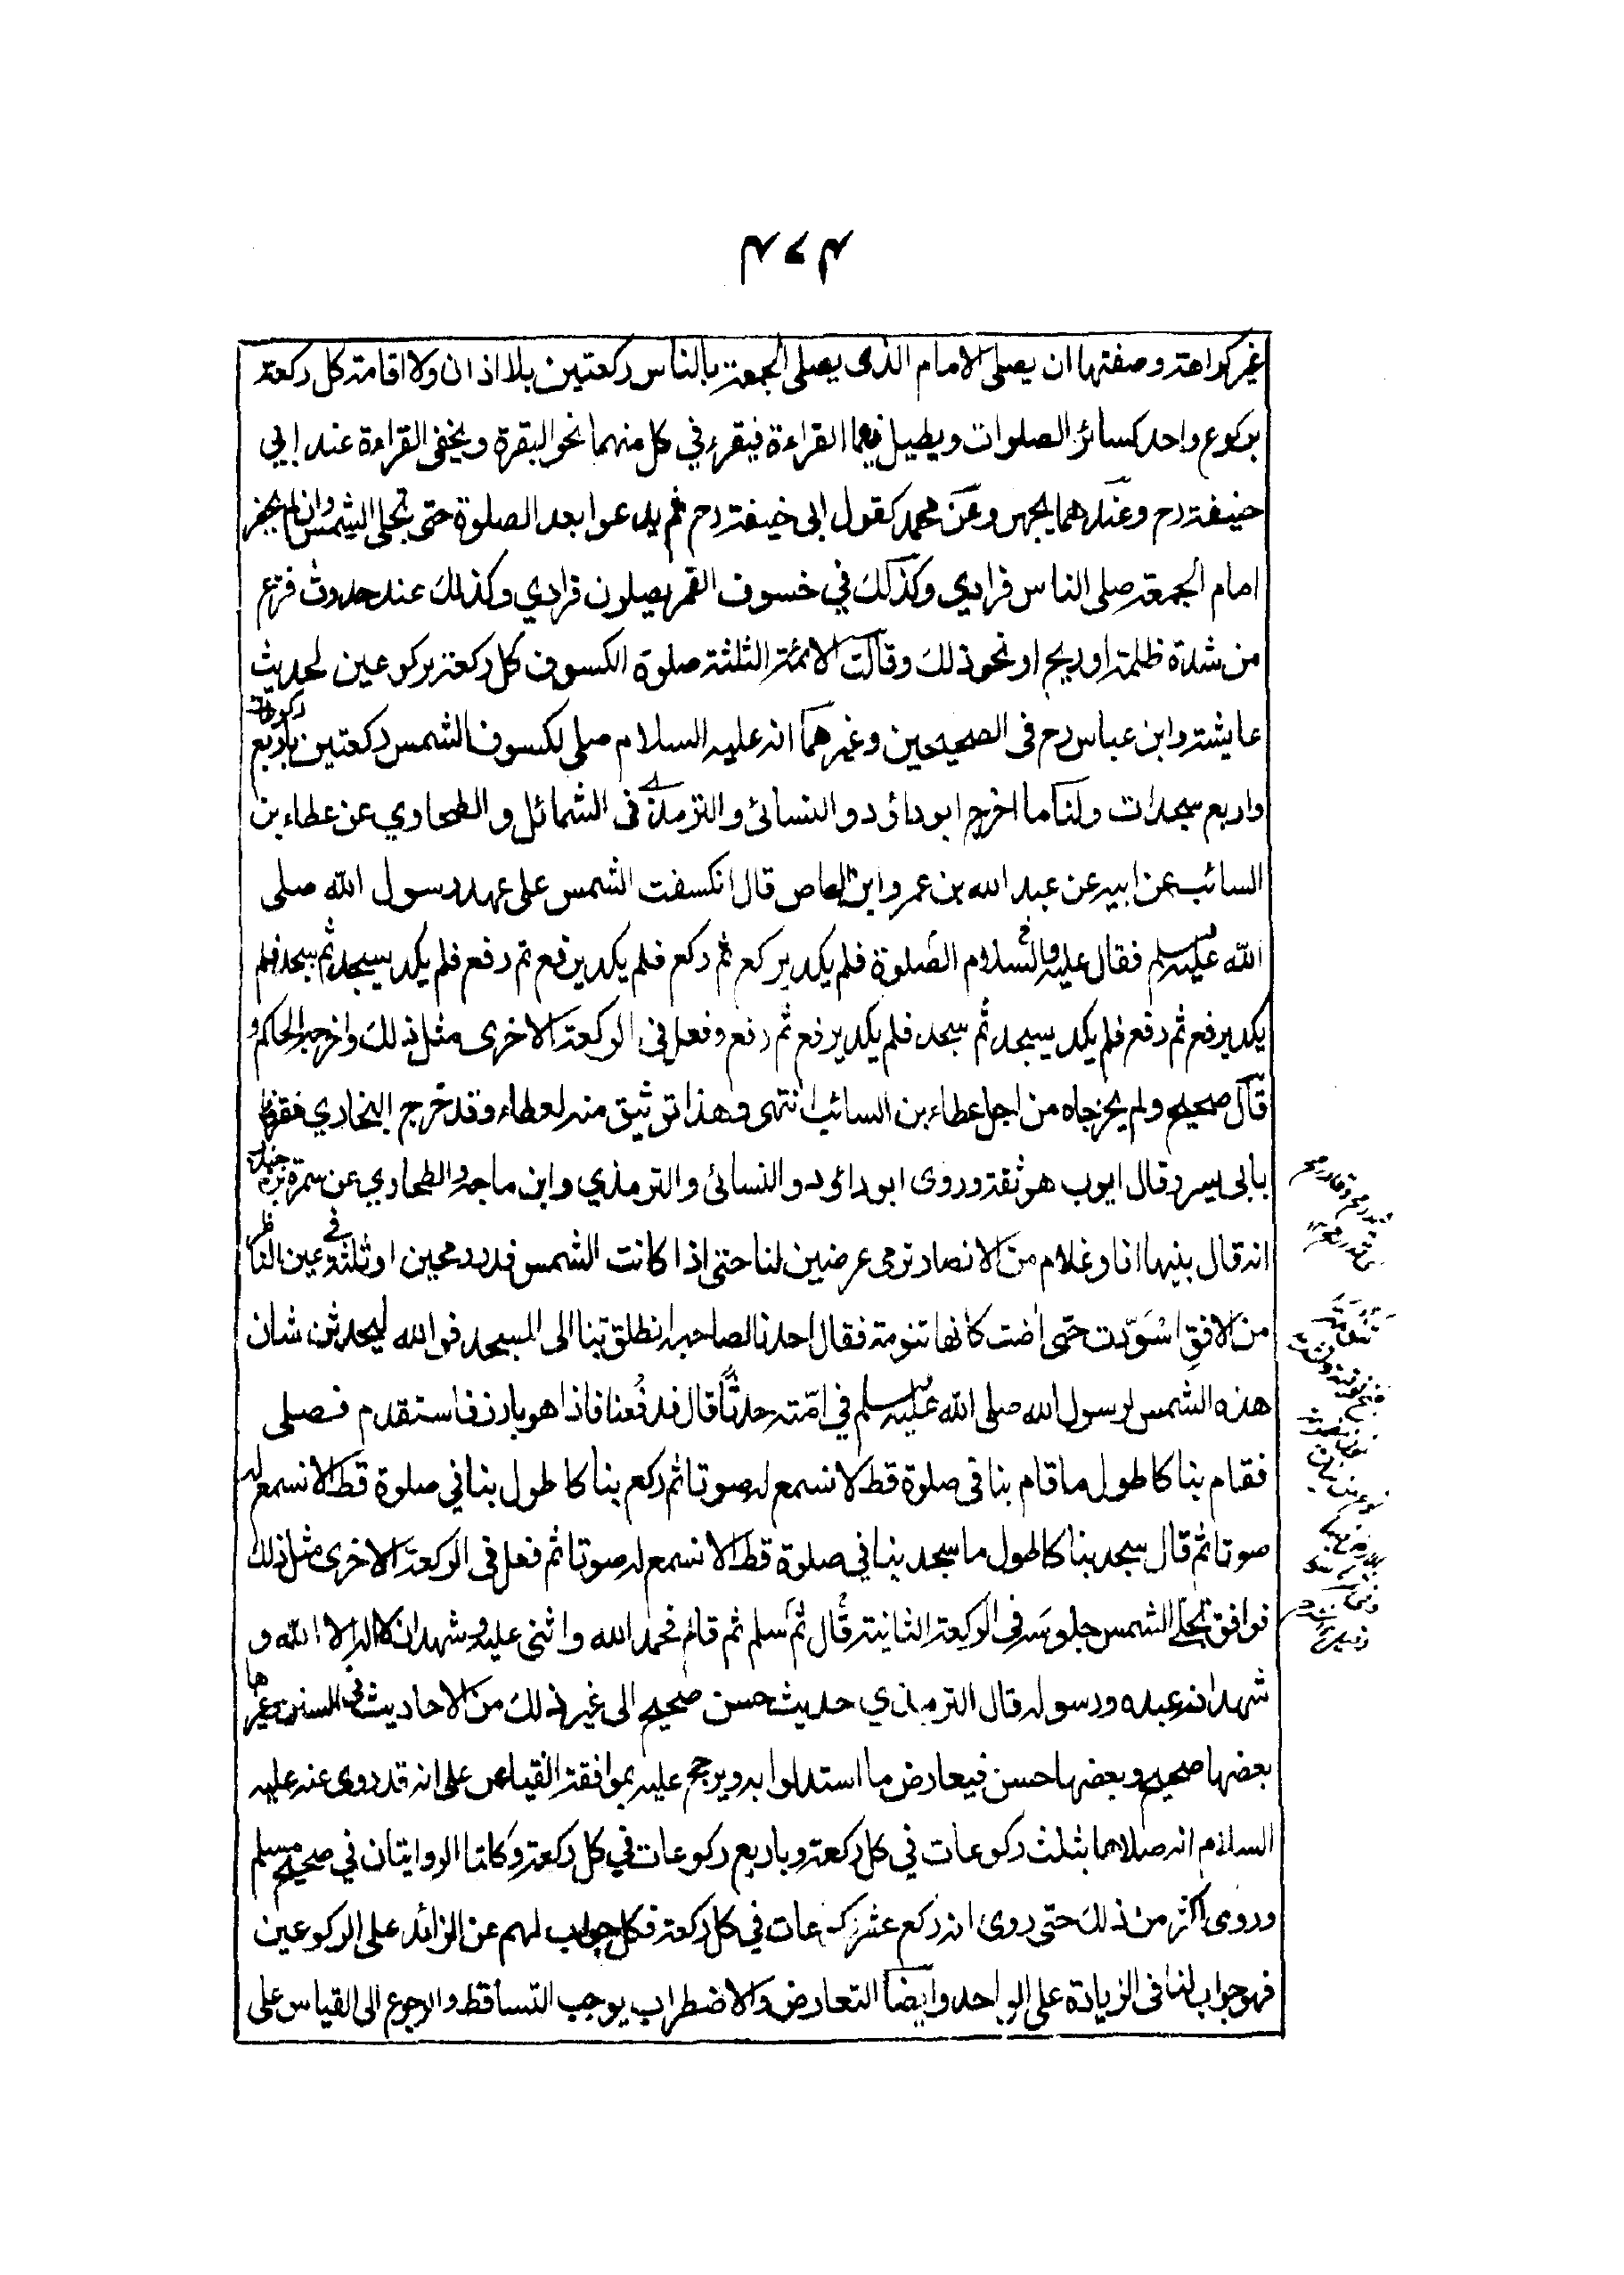 غير كراهة وصفتها ان يصلى الامام الذى يصلى الجمعة بالناس ركعتين بلا اذان ولا اقامة كل ركعة
بركوع واحد كسائر الصلوات ويطيل فيهما القراءة فيقرء في كل منهما نحو البقرة ويخفى القراءة عند ابي
حنيفة رح وعندهما يجهر وعن محمد كقول ابى حنيفة رح ثم يدعوا بعد الصلوة حتى تجلى الشمس وان لم يحضر
امام الجمعة صلى الناس فرادي وكذلك في خسوف القمر يصلون فرادي وكذلك عند حدوث فزع
من شدة ظلمة او ريح او نحو ذلك وقالت الائمة الثلثة صلوة الكسوف كل ركعة بركوعين لحديث
عايشة وابن عباس رح فى الصحيحين وغيرهما انه عليه السلام صلى لكسوف الشمس ركعتين باربع ركوعات
واربع سجدات ولنا ما اخرج ابو داؤد والنسائى والترمذي فى الشمائل والطحاوي عن عطاء بن
السائب عن ابيه عن عبد الله بن عمرو ابن العاص قال انكسفت الشمس على عهد رسول الله صلى
الله عليه وسلم فقال عليه السلام الصلوة فلم يكد يركع ثم ركع فلم يكد يرفع ثم رفع فلم يكد يسجد ثم سجد فلم
يكد يرفع ثم رفع فلم يكد يسجد ثم سجد فلم يكد يرفع ثم رفع وفعل فى الركعة الاخرى مثل ذلك واخرجه الحاكم و
قال صحيح ولم يخرجاه من اجل عطاء بن السائب انتهى وهذا توثيق منه لعطاء وقد خرج البخاري مقرونا
بابى بسر وقال ايوب هو ثقة وروى ابو دائود والنسائى والترمذي وابن ماجه والطحاوي عن سمرة بن جندب
انه قال بينها انا وغلام من الانصار نرمى عرضين لنا حتى اذا كانت الشمس قدر رمحين او ثلثة في عين الناظر
من الافق اسودت حتى اضت كانها تنومة فقال احدنا لصاحبه انطلق بنا الى المسجد فو الله ليحدثن شان
هذه الشمس لرسول الله صلى الله عليه وسلم في امته حدثا قال فدفعنا فاذا هو بارز فاستقدم فصلى
فقام بنا كاطول ما قام بنا فى صلوة قط لا نسمع له صوتا ثم ركع بنا كاطول بنا في صلوة قط لا نسمع له
صوتا ثم قال سجد بنا كاطول ما سجد بنا في صلوة قط لا نسمع له صوتا ثم فعل فى الركعة الاخرى مثل ذلك
فوافق تجلى الشمس جلوسه فى الركعة الثانية قال ثم سلم ثم قام فحمد الله واثنى عليه وشهد ان لا اله الا الله و
شهد انه عبده ورسوله قال الترمذي حديث حسن صحيح الى غير ذلك من الاحاديث في السنن وغيرها
بعضها صحيح وبعضها حسن فيعارض ما استدلوا به ويرجح عليه بموافقة القياس على انه قد روى عنه عليه
السلام انه صلاهما بثلث ركوعات في كل ركعة وباربع ركوعات في كل ركعة وكلتا الروايتان في صحيح مسلم
وروى اكثر من ذلك حتى روى انه ركع عشر ركوعات في كل ركعة فكل جواب لهم عن الزائد على الركوعين
فهو جواب لنا فى الزيادة على الواحد وايضا التعارض والاضطراب يوجب التساقط والرجوع الى القياس على